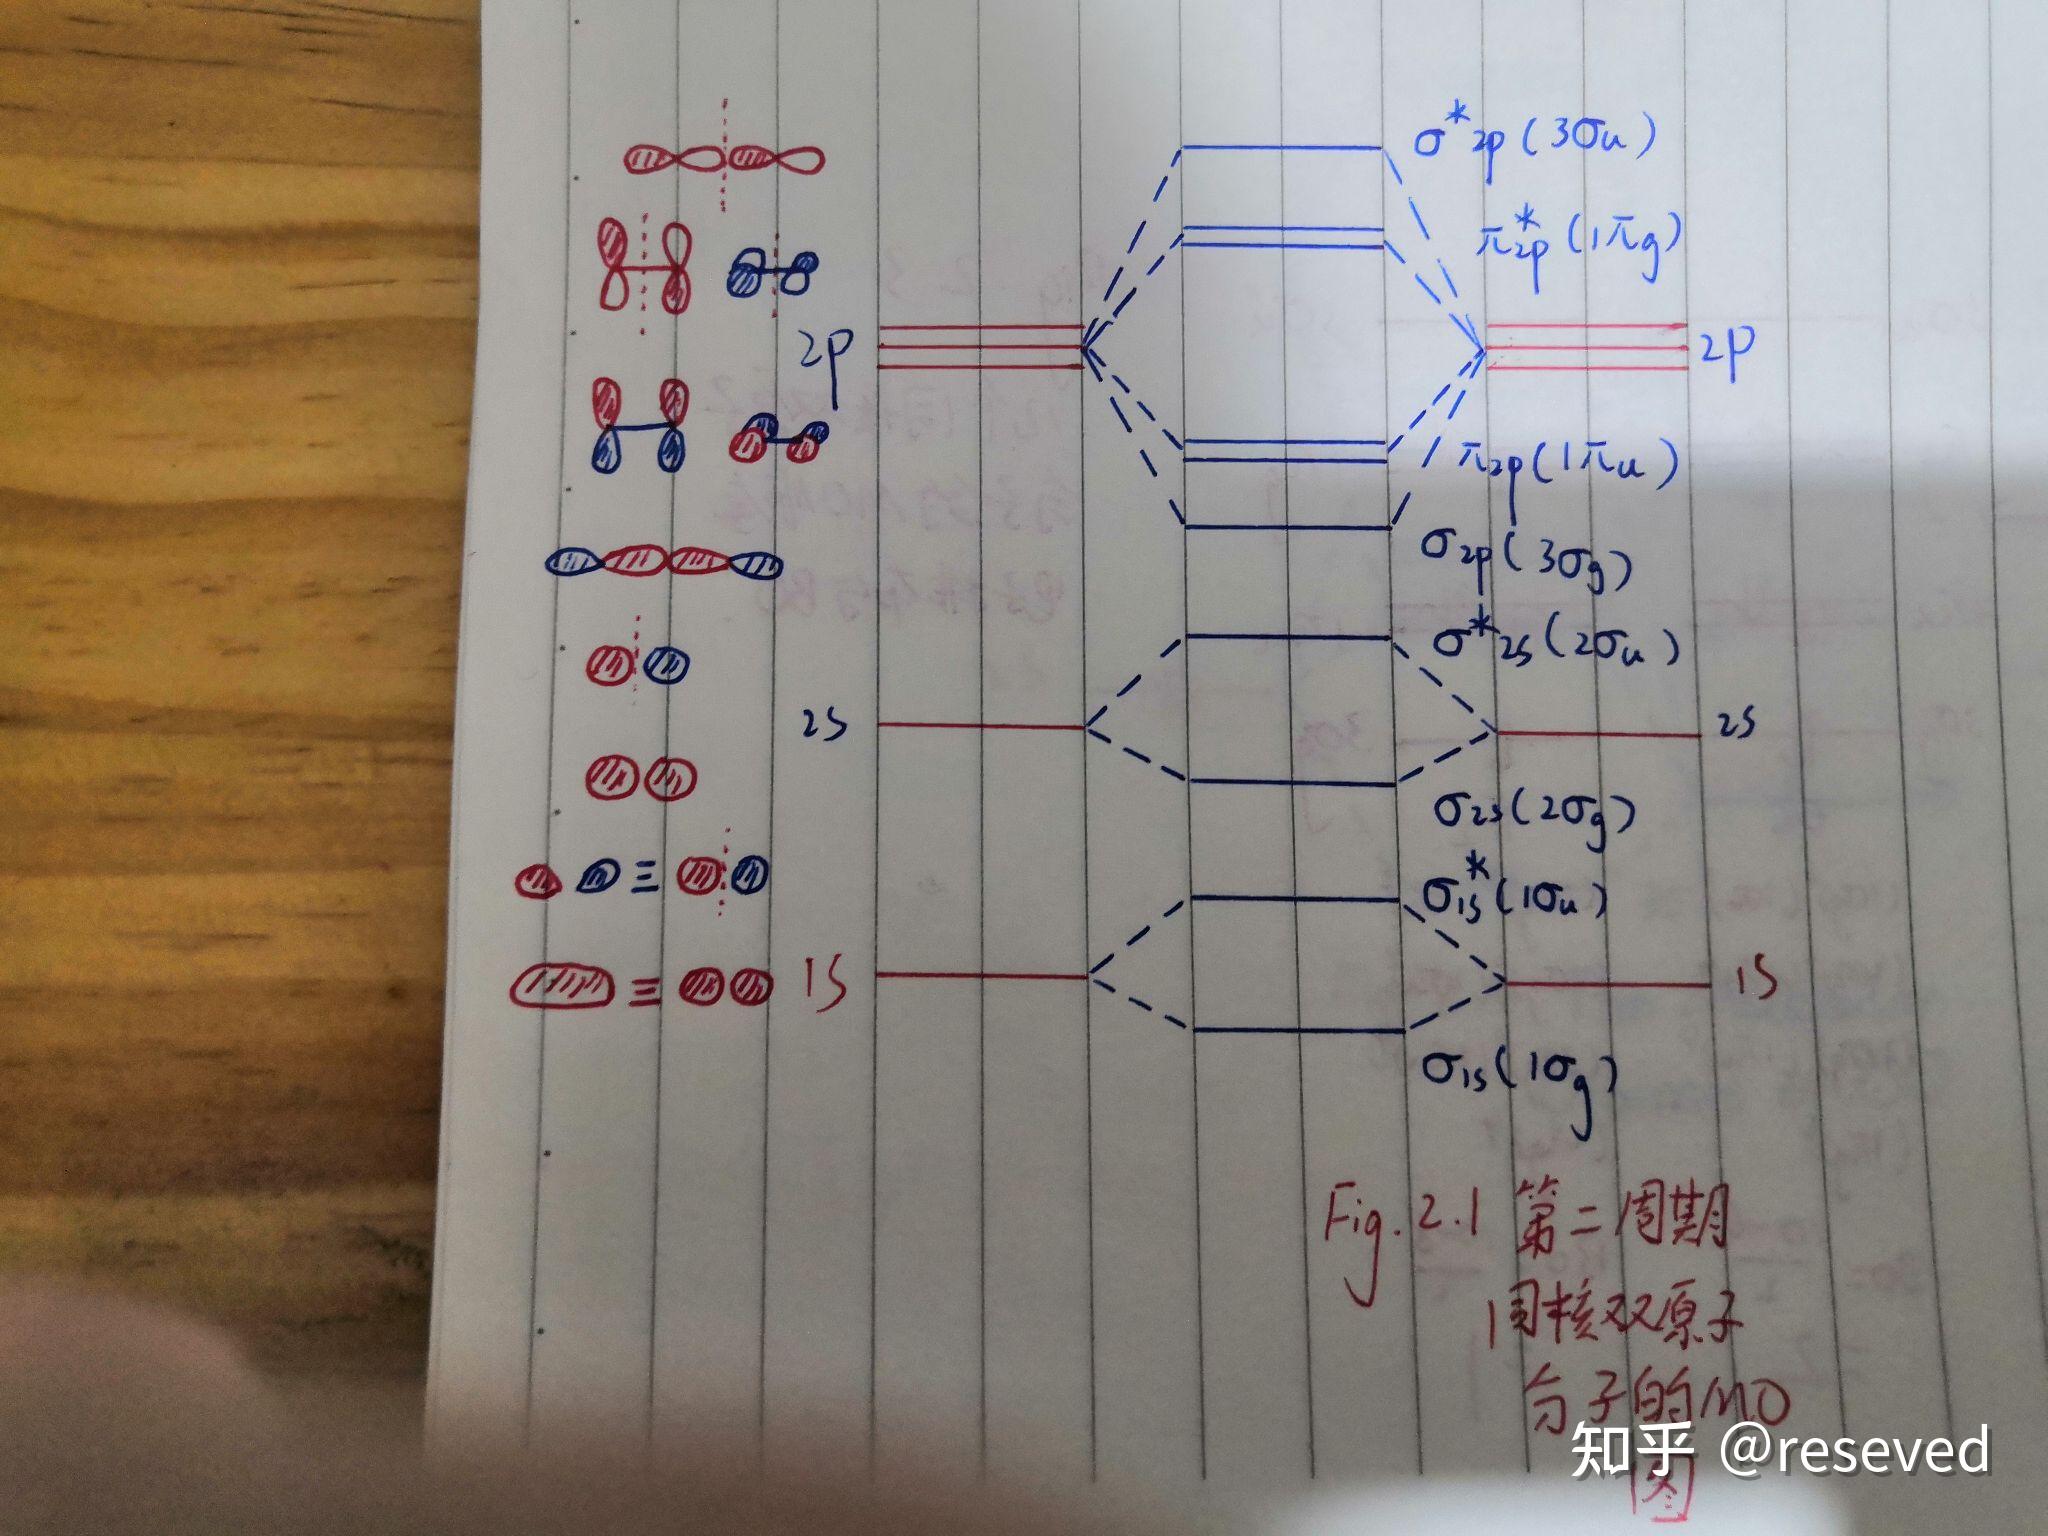 σ*2p(3σu)
π*2p(1πg)
2p
2p
π2p(1πu)
σ2p(3σg)
σ*2s(2σu)
2s
2s
σ2s(2σg)
σ*1s(1σu)
≡
≡
1s
1s
σ1s(1σg)
Fig.2.1 第二周期
同核双原子
分子的MO
图
知乎 @reseved